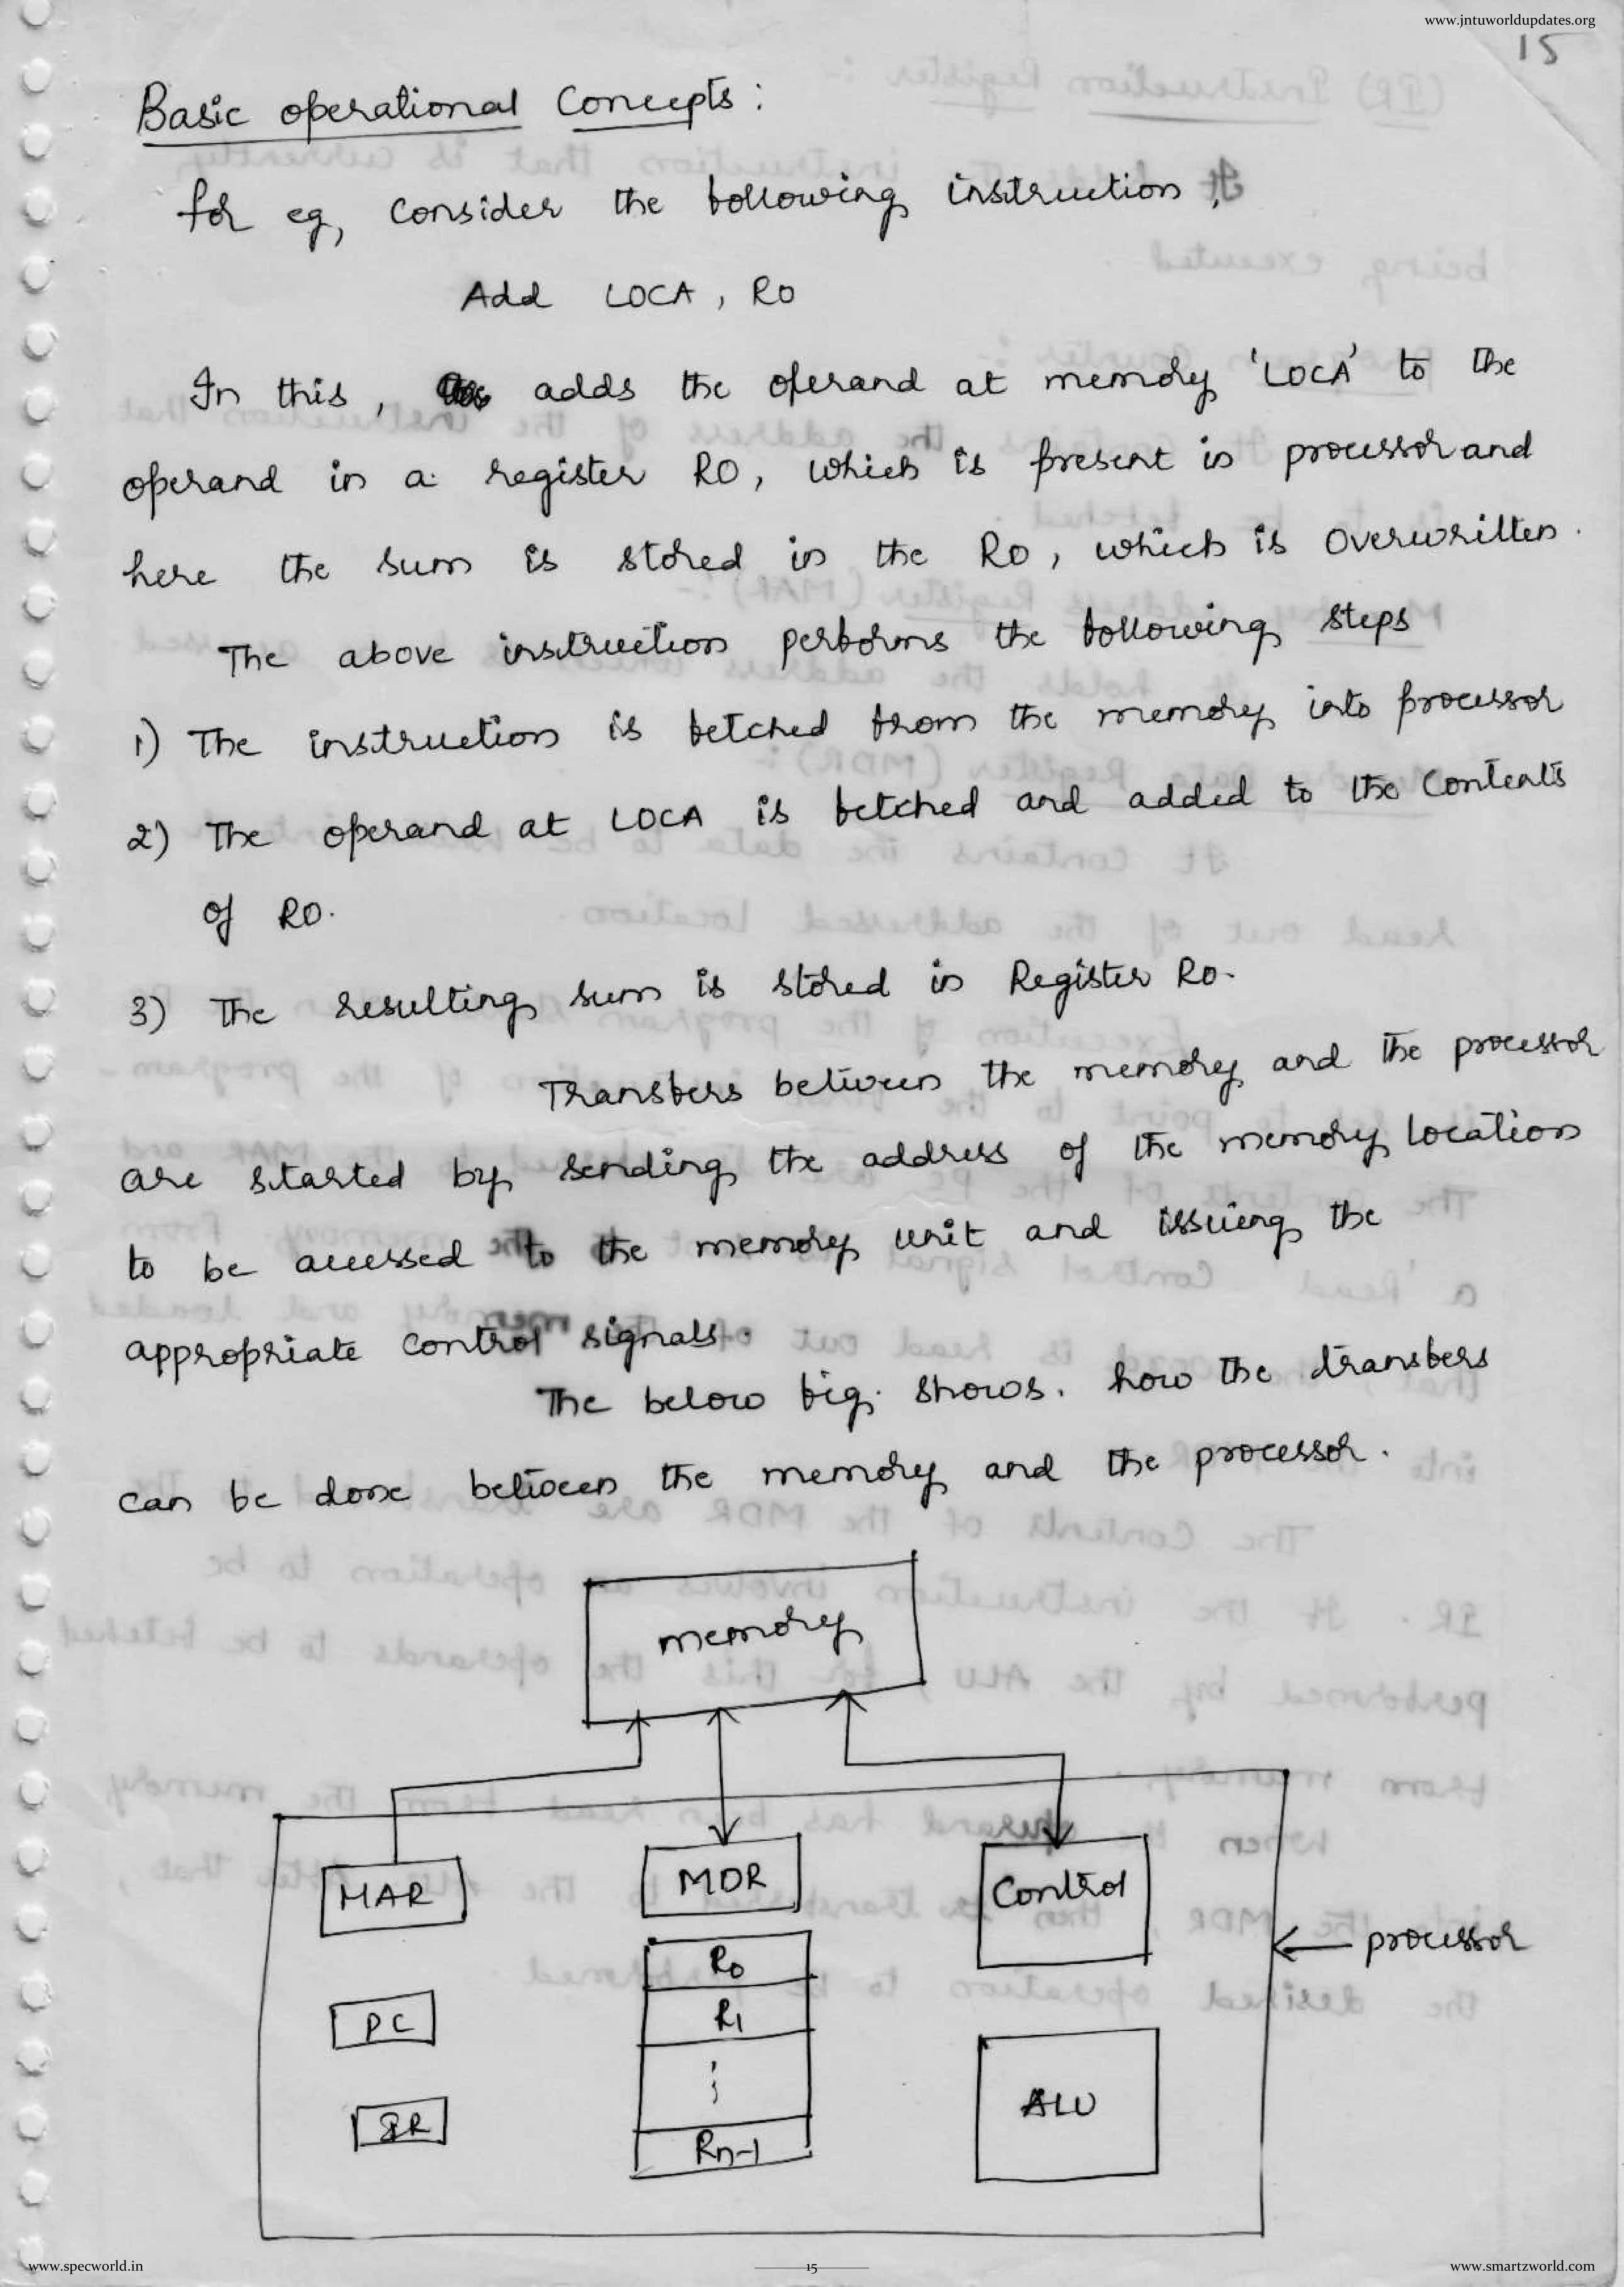 www.jntuworldupdates.org
15
Basic operational Concepts :
for eg, consider the following instruction,
Add LOCA, R0
In this, adds the operand at memory 'LOCA' to the
operand in a register R0, which is present in processor and
here the sum is stored in the R0, which is overwritten.
The above instruction performs the following steps
1) The instruction is fetched from the memory into processor
2) The operand at LOCA is fetched and added to the contents
of R0.
3) The resulting sum is stored in Register R0.
Transfers between the memory and the processor
are started by sending the address of the memory location
to be accessed to the memory unit and issuing the
appropriate control signals.
The below fig. shows. how the transfers
can be done between the memory and the processor.
memory
MAR
MDR
Control
R0
processor
PC
R1
ALU
IR
Rn-1
www.specworld.in
15
www.smartzworld.com